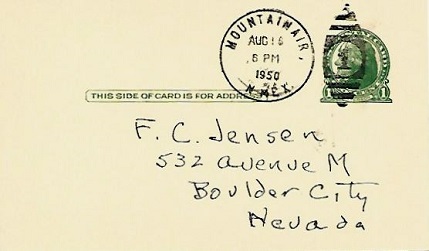 MOUNTAINAIR,
AUG 16
6 PM
1950
N. MEX.
THIS SIDE OF CARD IS FOR ADDRE
1
F. C. Jensen
532 avenue M
Boulder City
Nevada